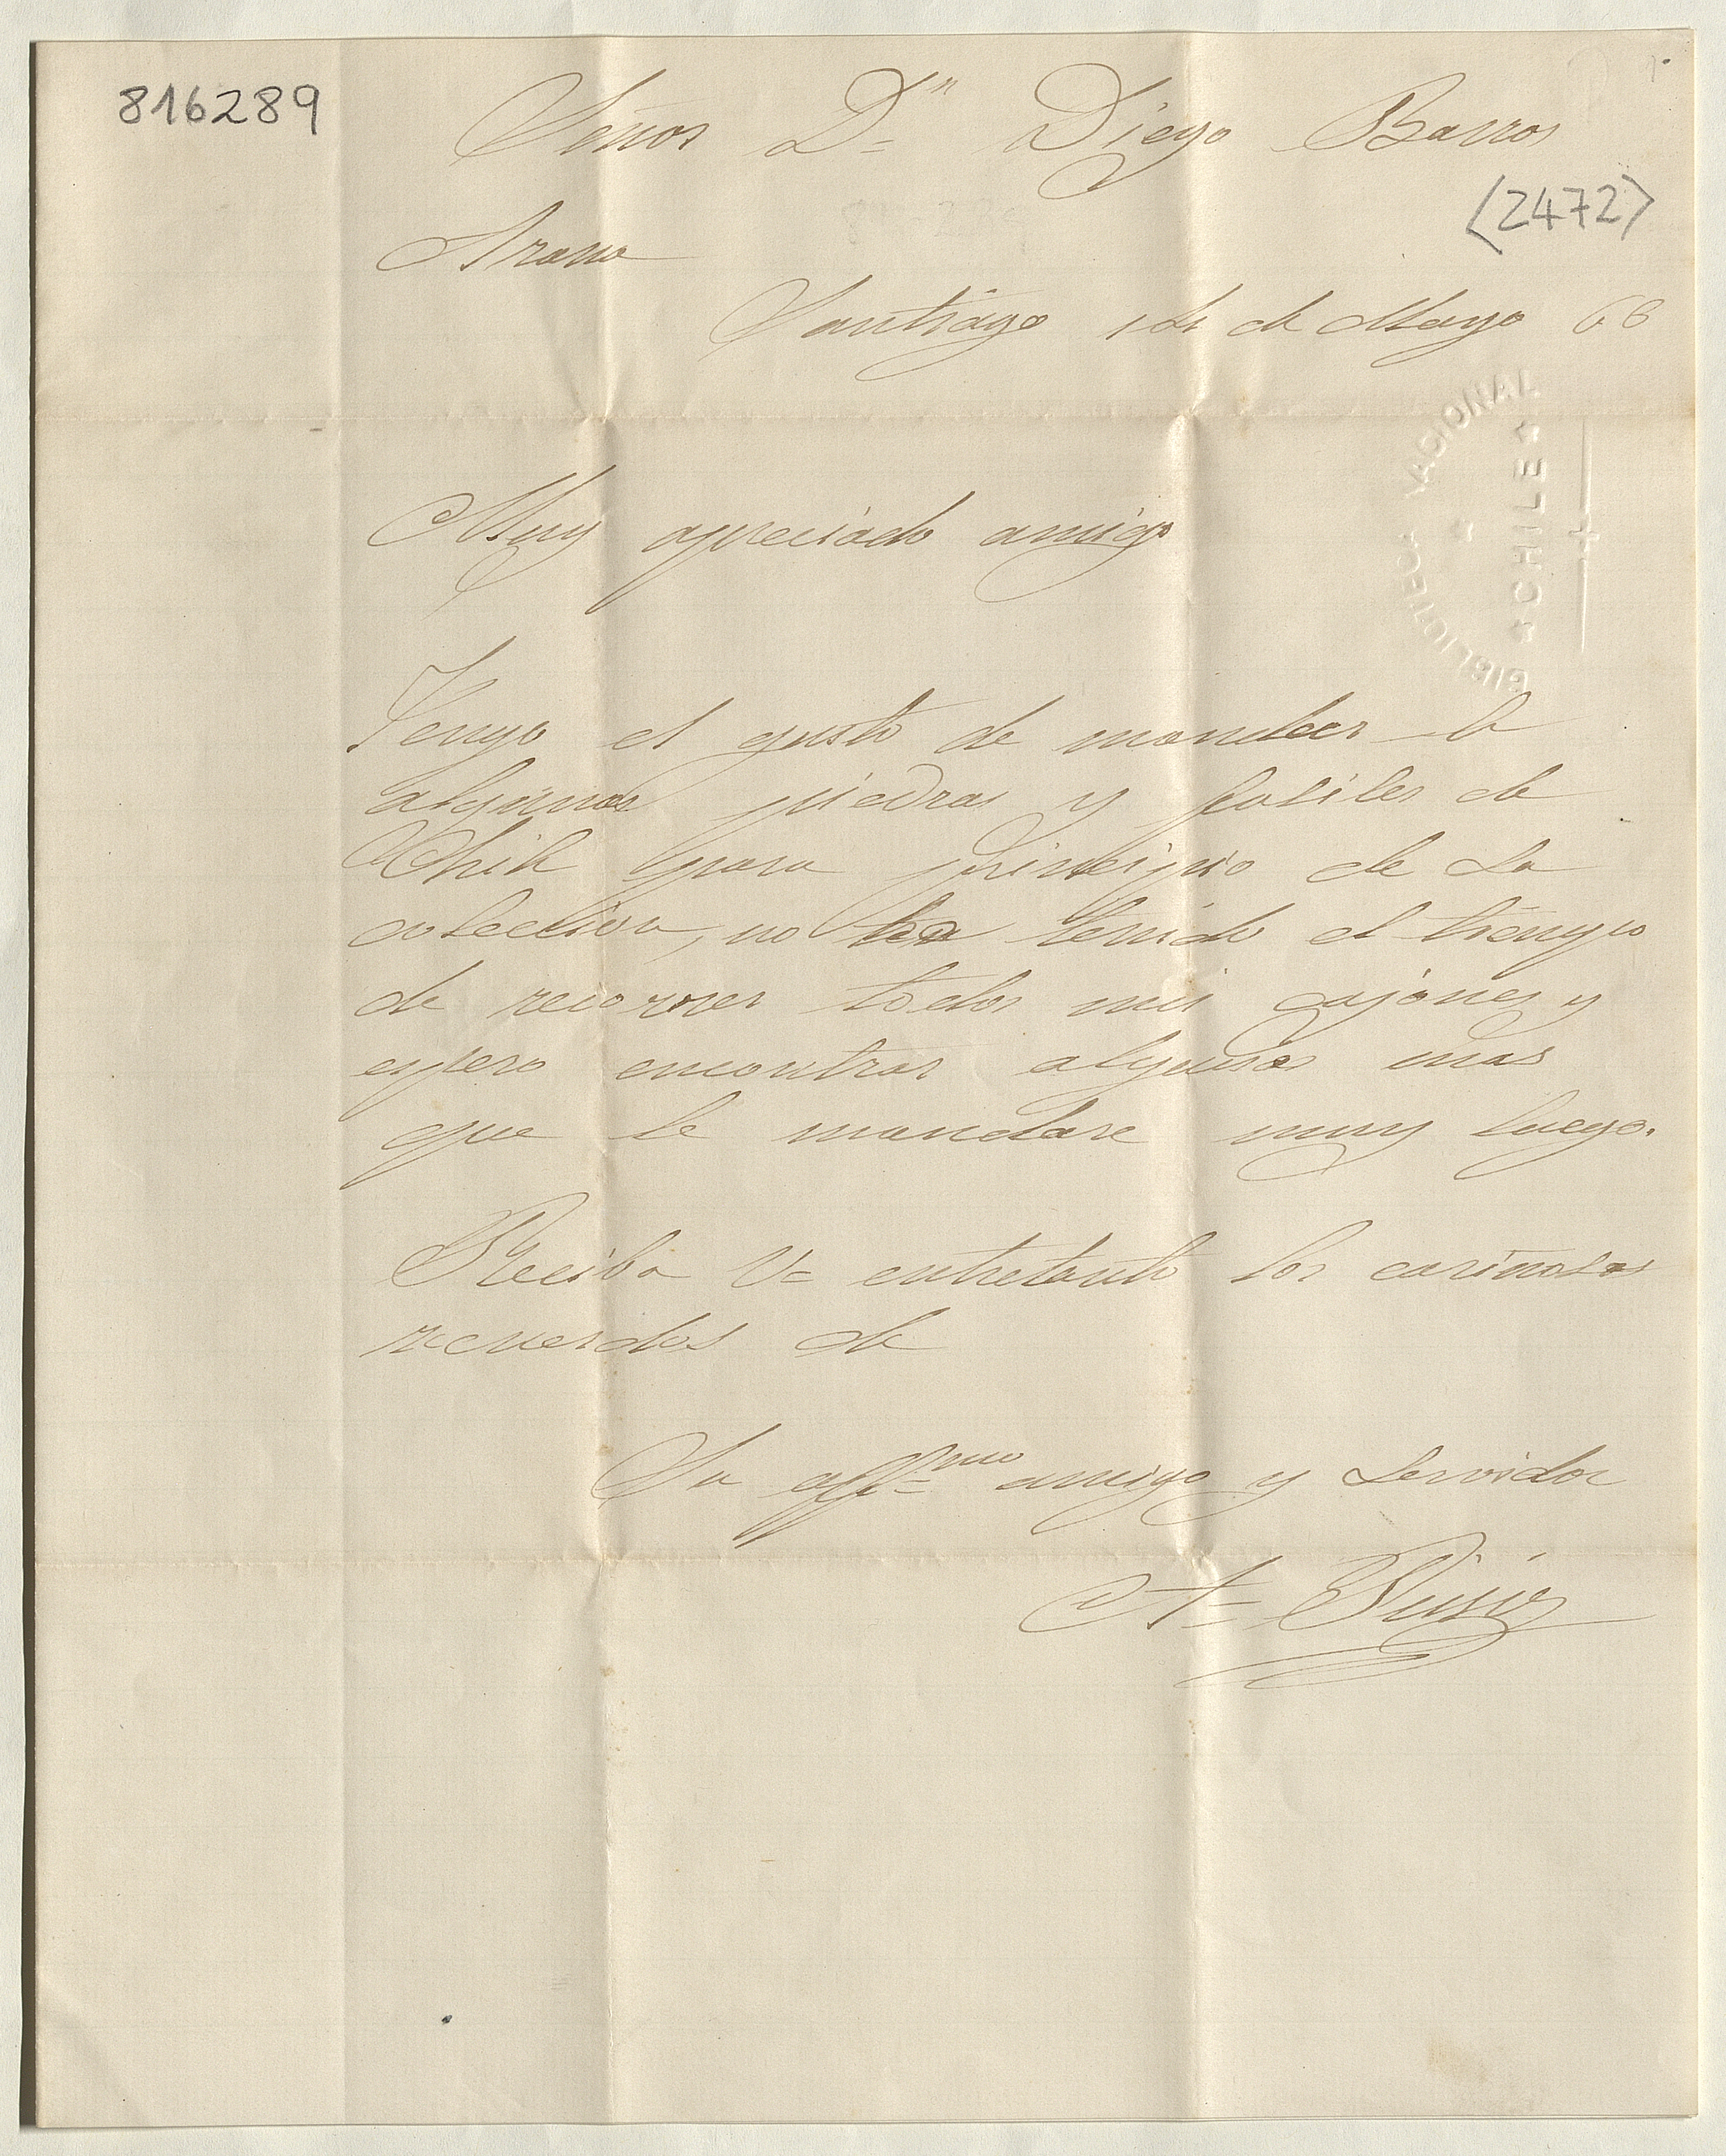 816289
Señor Dⁿ Diego Barros
(2472)
Arana
Santiago 14 de Mayo 66
BIBLIOTECA NACIONAL
CHILE
Muy apreciado amigo
Tengo el gusto de mandar le
algunas piedras y fosiles de
Chile para principio de la
coleccion, no he tenido el tiempo
de recorrer todos mis cajones y
espero encontrar algunas mas
que le mandare muy luego.
Reciba V= entretanto los cariñosos
recuerdos de
Su affmo amigo y servidor
A= Pissis